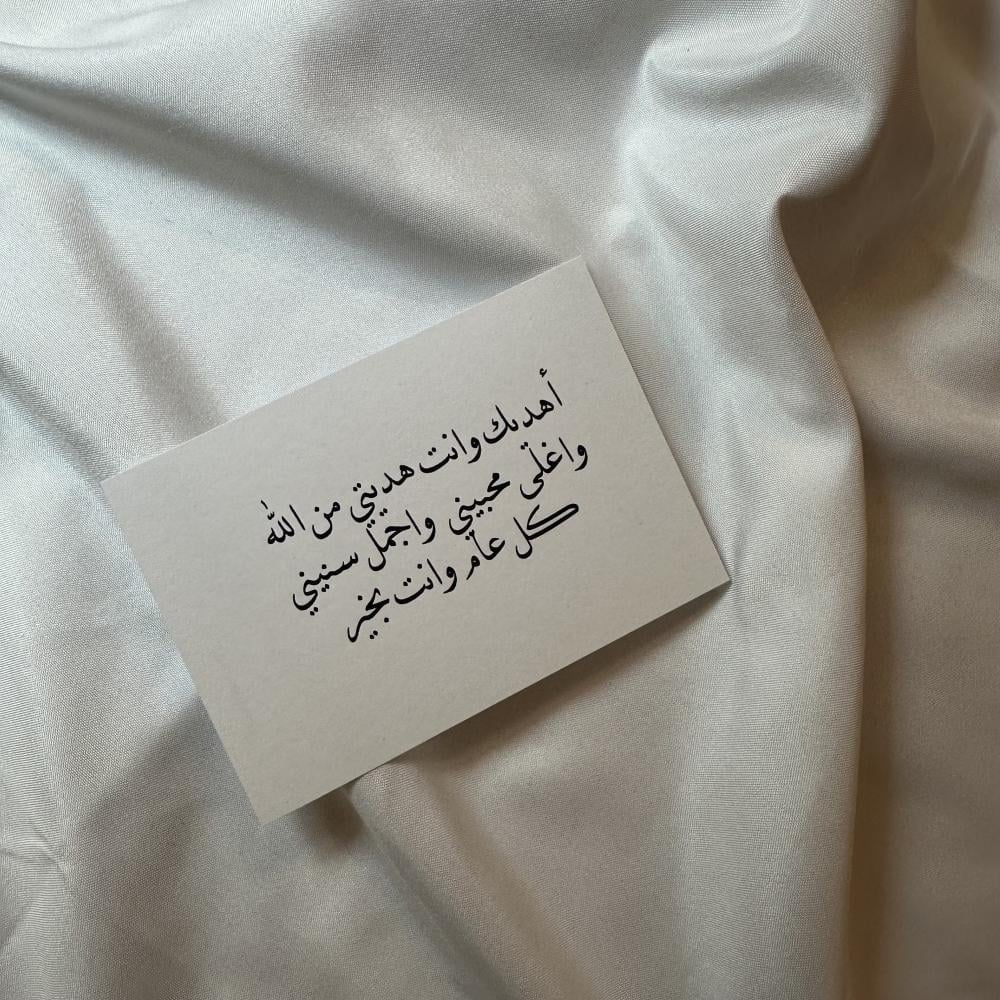 أهديك وانت هديتي من الله
واغلى محبيني واجمل سنيني
كل عام وانت بخير